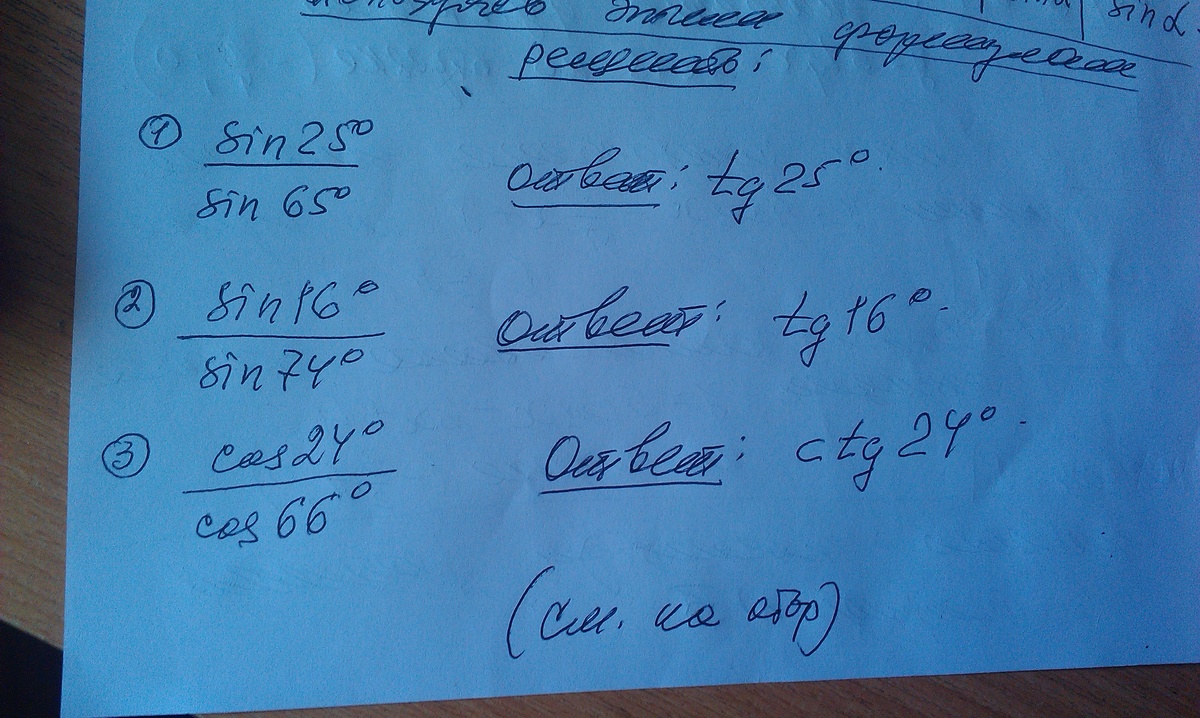 sin α
этими формулами
решить:
① sin 25° / sin 65° Ответ: tg 25°.
② sin 16° / sin 74° Ответ: tg 16°.
③ cos 24° / cos 66° Ответ: ctg 24°.
(см. на обор)